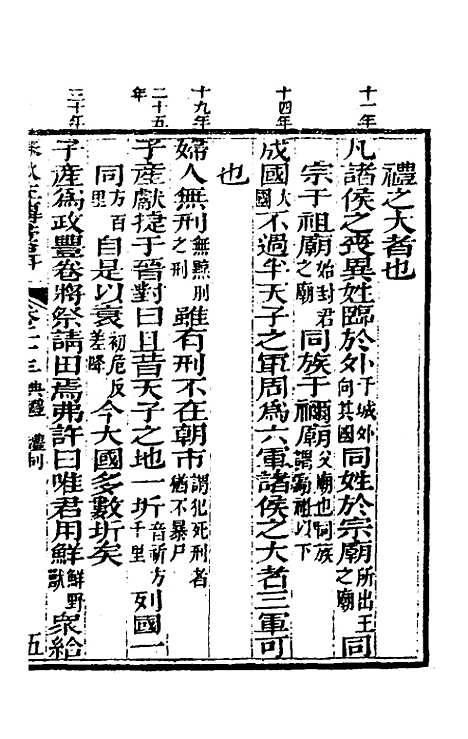 禮之大者也
十一年
凡諸侯之喪異姓臨於外于城外向其國同姓於宗廟所出王之廟同
宗于祖廟始封君之廟同族于禰廟父廟也同族謂高祖以下
十四年
成國大國不過半天子之軍周為六軍諸侯之大者三軍可
也
十九年
婦人無刑無黥刖之刑雖有刑不在朝市謂犯死刑者猶不暴尸
二十五年
子產獻捷于晉對曰且昔天子之地一圻音祈方千里列國一
同方百里自是以衰初危反差降今大國多數圻矣
三十年
子產為政豐卷將祭請田焉弗許曰唯君用鮮鮮野獸眾給
卷十三 典禮 禮何 五